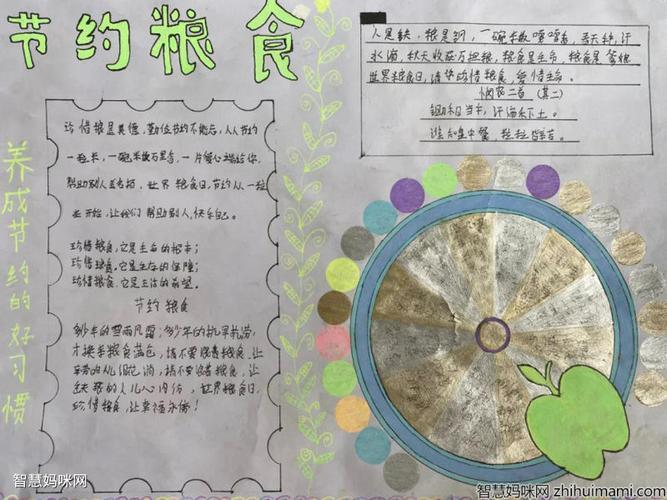 节约粮食
养成节约的好习惯
珍惜粮食是美德，勤俭节约不能忘，人人节约
一粒米，一碗米散万里香，一片爱心端给你
帮助别人，世界粮食日，节约从一粒
米开始，让我们帮助别人，快乐自己。
珍惜粮食，它是生命的根本；
珍惜粮食，它是生存的保障；
珍惜粮食，它是生活的希望。
节约粮食
多少年的雪雨风霜；多少年的
才换来粮食满仓，请不要浪费粮食，让
请不要浪费粮食，让
的人儿心内伤，世界粮食日，
珍惜粮食，让幸福永驻！
人是铁，粮是钢，一碗米散喷喷香，春天种，汗
水滴，秋天收获万担粮，粮食是生命，粮食是
世界粮食日，请你珍惜粮食，爱惜生命。
悯农二首（其二）
锄禾日当午，汗滴禾下土。
谁知盘中餐，粒粒皆辛苦。
智慧妈咪网
智慧妈咪网 zhihuimami.com